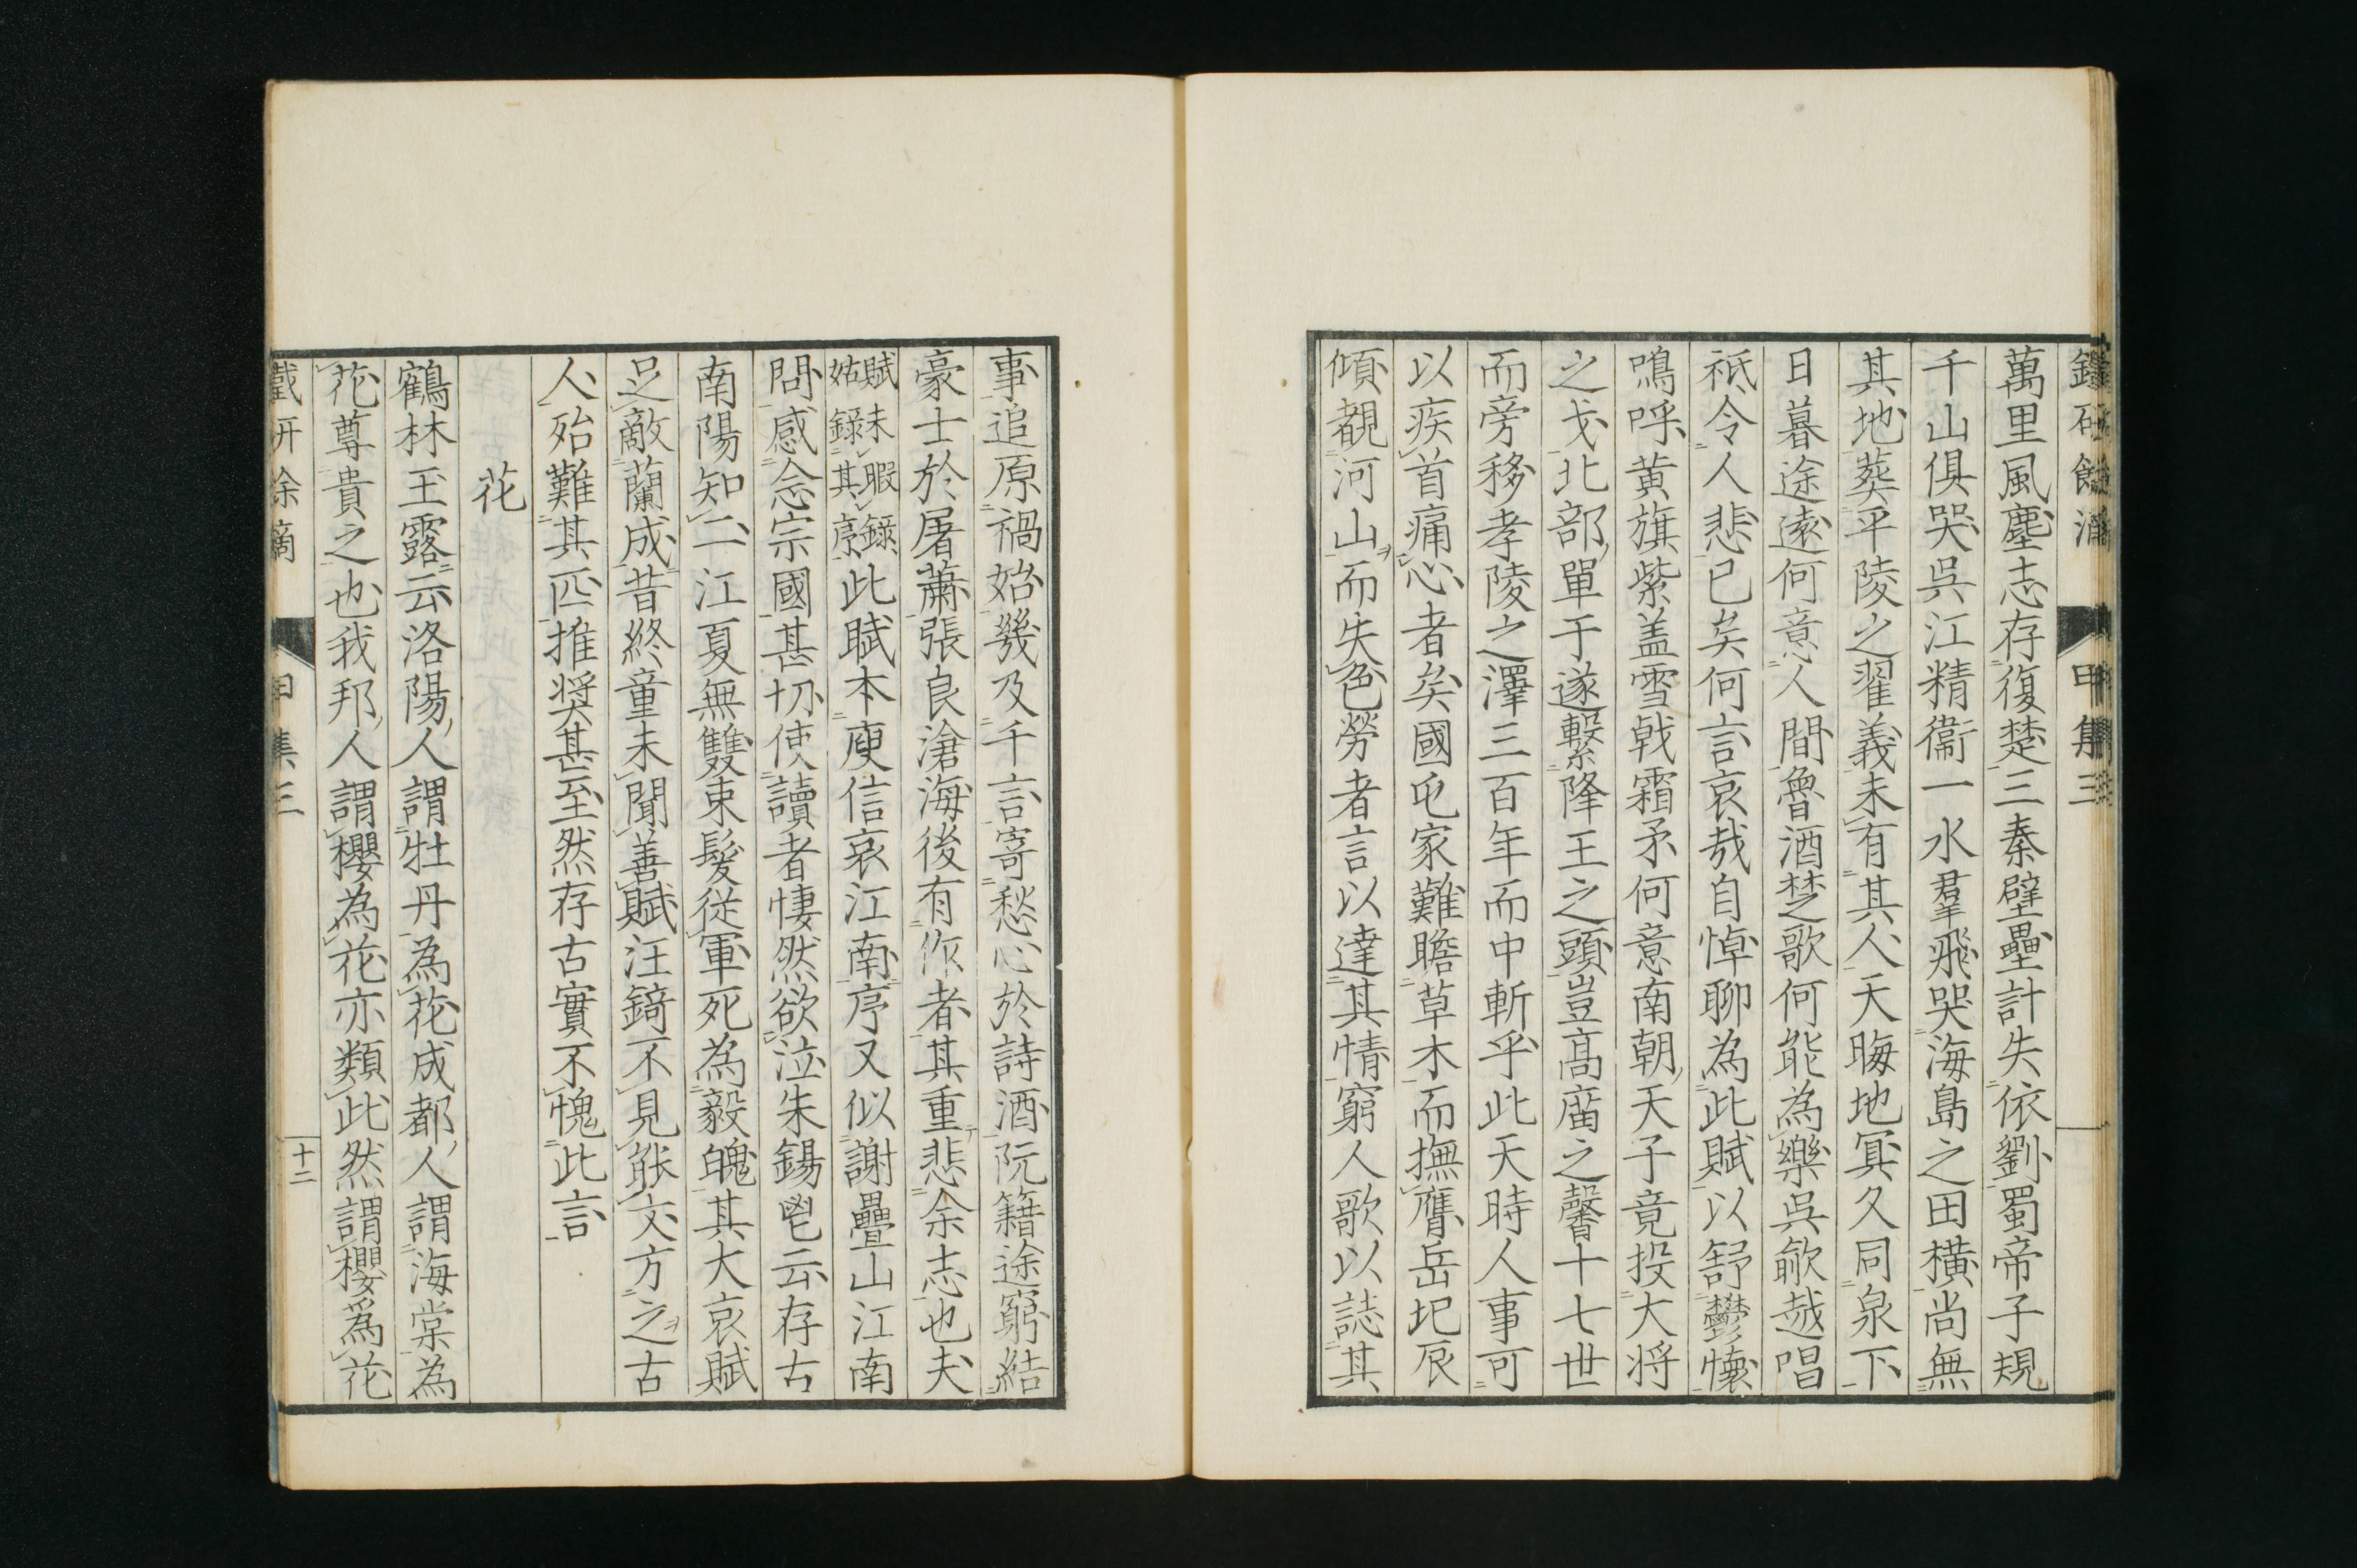 鐵研餘滴 甲集三
萬里風塵志存復楚三秦壁壘計失依劉蜀帝子規
千山俱哭吳江精衞一水羣飛哭海島之田橫尚無
其地葬平陵之翟義未有其人天晦地冥久同泉下
日暮途遠何意人間魯酒楚歌何能為樂吳歈越唱
祇令人悲已矣何言哀哉自悼聊為此賦以舒鬱懷
嗚呼黃旗紫盖雪戟霜矛何意南朝天子竟投大將
之戈北部單于遂繫降王之頭豈高廟之馨十七世
而旁移孝陵之澤三百年而中斬乎此天時人事可
以疾首痛心者矣國屯家難瞻草木而撫膺岳圮辰
傾覩河山而失色勞者言以達其情窮人歌以誌其
事追原禍始幾及千言寄愁心於詩酒阮籍途窮結
豪士於屠蕭張良滄海後有作者其重悲余志也夫
賦未暇錄
姑錄其序
此賦本庾信哀江南序又似謝疊山江南
問感念宗國甚切使讀者悽然欲泣朱錫鬯云存古
南陽知二江夏無雙束髮從軍死為毅魄其大哀賦
足敵蘭成昔終童未聞善賦汪錡不見能文方之古
人殆難其匹推奬甚至然存古實不愧此言
花
鶴林玉露云洛陽人謂牡丹為花成都人謂海棠為
花尊貴之也我邦人謂櫻為花亦類此然謂櫻爲花
鐵研余滴 甲集三 十二